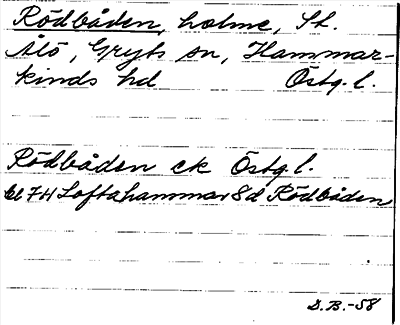 Rödbåden, holme, St.
Ålö, Gryts sn, Hammar-
kinds hd Östg. l.
Rödbåden ek Östg. l.
bl 74 Loftahammar 8d Rödbåden
D.B.-58